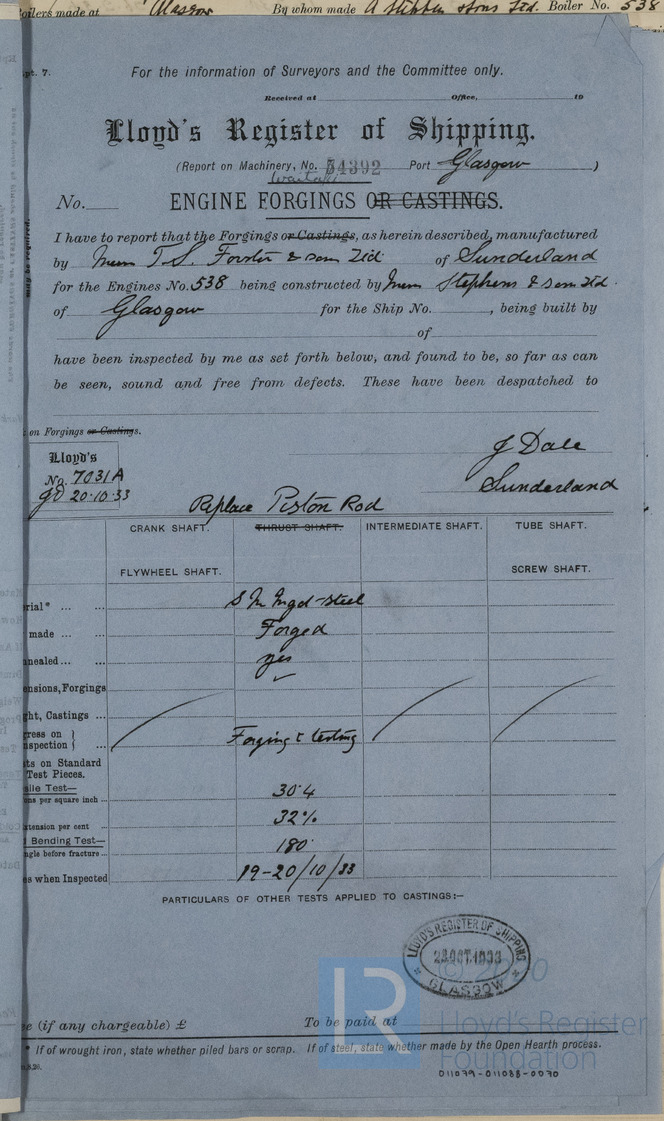 Boilers made at Glasgow By whom made A Stephen & Sons Ltd. Boiler No. 538
pt. 7.
For the information of Surveyors and the Committee only.
Received at Office, 19
Lloyd's Register of Shipping.
(Report on Machinery, No. 54392 Port Glasgow )
No. ENGINE FORGINGS OR CASTINGS.
I have to report that the Forgings or Castings, as herein described, manufactured
by Messrs T. S. Forster & Sons Ltd. of Sunderland
for the Engines No. 538 being constructed by Messrs Stephens & Sons Ltd.
of Glasgow for the Ship No. , being built by
of
have been inspected by me as set forth below, and found to be, so far as can
be seen, sound and free from defects. These have been despatched to
on Forgings or Castings.
Lloyd's
No. 7031A
JD 20.10.33
J Dale
Sunderland
Replace Piston Rod
CRANK SHAFT. THRUST SHAFT. INTERMEDIATE SHAFT. TUBE SHAFT.
FLYWHEEL SHAFT. SCREW SHAFT.
rial* ... ... S M Ingot-Steel
made ... ... Forged
nnealed ... ... yes
ensions, Forgings
ght, Castings ...
gress on
nspection ... Forging & testing
ts on Standard
Test Pieces.
sile Test—
ons per square inch ... 30.4
xtension per cent ... 32%
d Bending Test—
ngle before fracture ... 180°
es when Inspected 19-20/10/33
PARTICULARS OF OTHER TESTS APPLIED TO CASTINGS:—
LLOYD'S REGISTER OF SHIPPING
OCT. 1933
GLASGOW
LR
© 2020
ee (if any chargeable) £ To be paid at
Lloyd's Register
Foundation
* If of wrought iron, state whether piled bars or scrap. If of steel, state whether made by the Open Hearth process.
011079-011088-0070